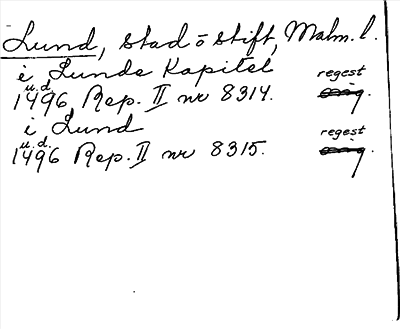 Lund, stad o stift, Malm. l.
i Lunds Kapitel regest
u. d.
1496 Rep. II nr 8314.
i Lund regest
u. d.
1496 Rep. II nr 8315.